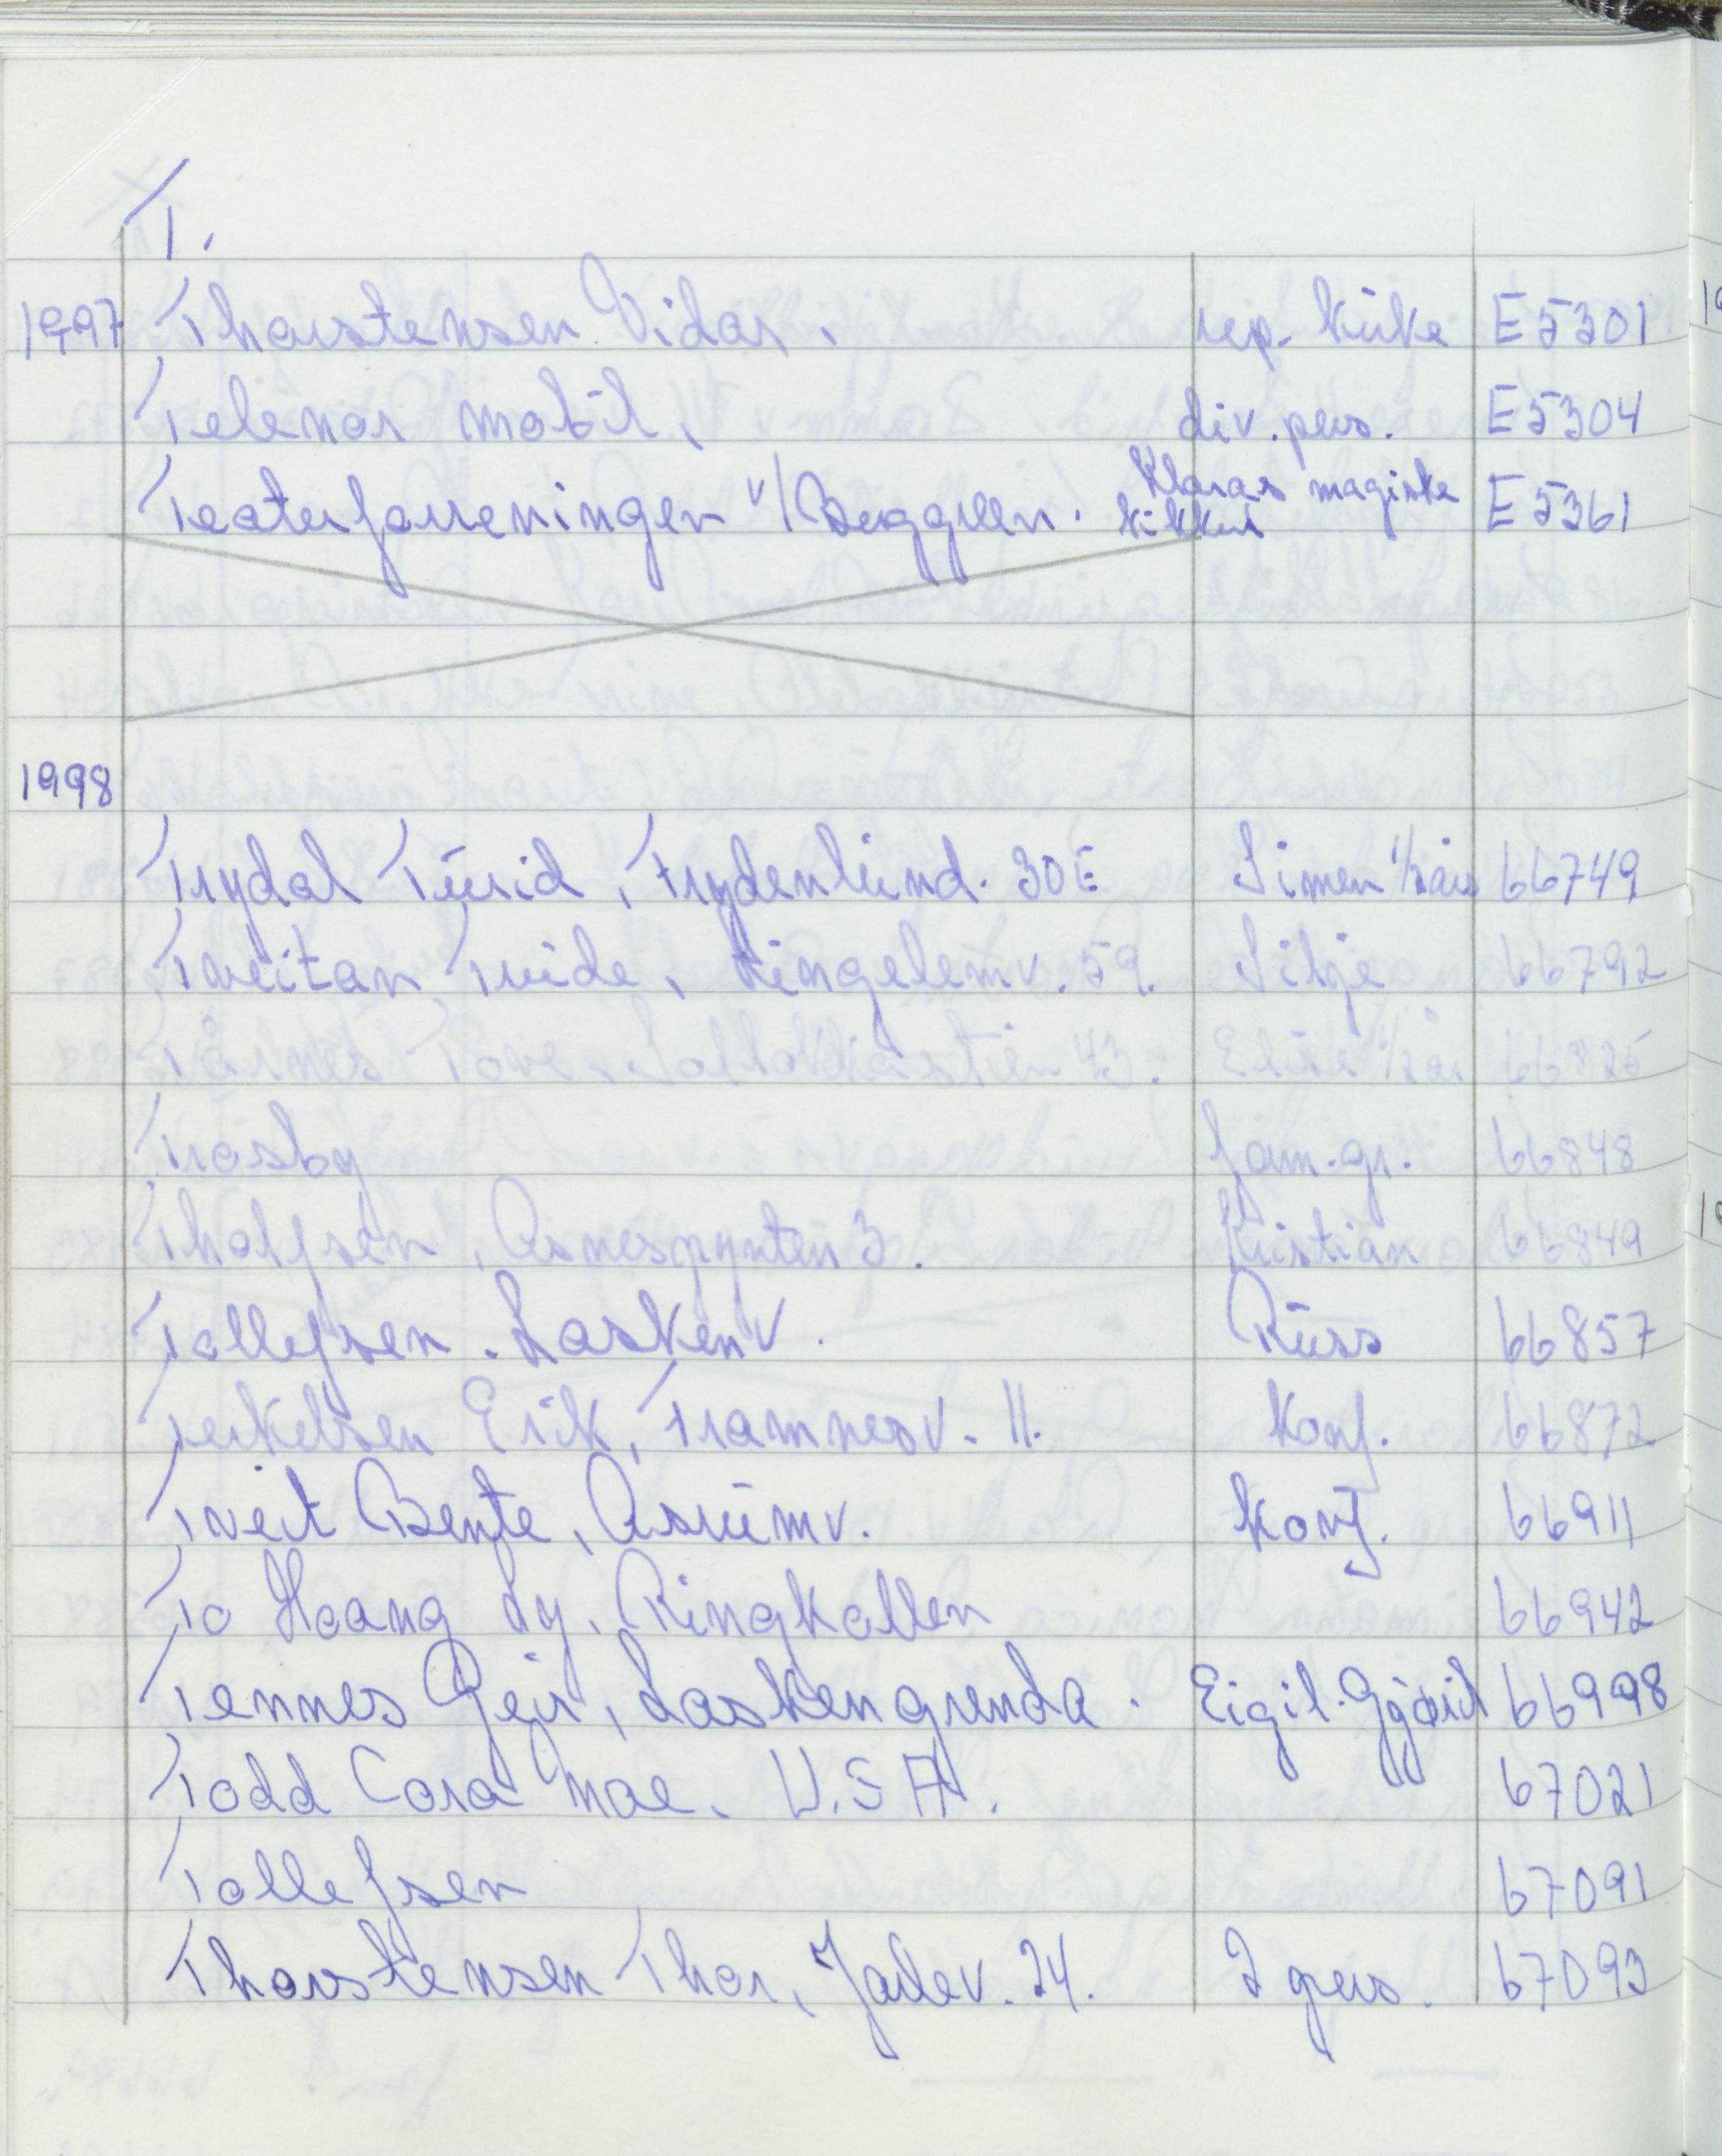 T.
1997 Thorstensen Vidar. rep. kirke E5301
Telenor mobil, div. pers. E5304
Teaterforreningen v/Berggren. Klaras magiske kikkert E5361
1998
Trydal Turid, Frydenlund. 30E Simen 1/2 års 66749
Tveitan Tvide, Ringelemv. 59. Silje 66792
Tårnes Tove, Solløkkastien 43. Elise 1/2 år 66825
Trosby fam.gr. 66848
Tholfsen, Asnespynten 3. Kristian 66849
Tollefsen. Laskenv. Russ 66857
Terkelsen Erik, Framnesv. 11. Konf. 66872
Tveit Bente, Asrumv. konf. 66911
To Hoang Ly, Ringkollen 66942
Tennes Geir, Laskengrenda. Eigil. Gjøril 66998
Todd Cora Mae. U.S.A. 67021
Tollefsen 67091
Thorstensen Thor, Jarlev. 24. 2 pers. 67093